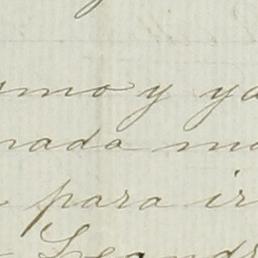 smo y ya
nada mo
para ir
Leandr